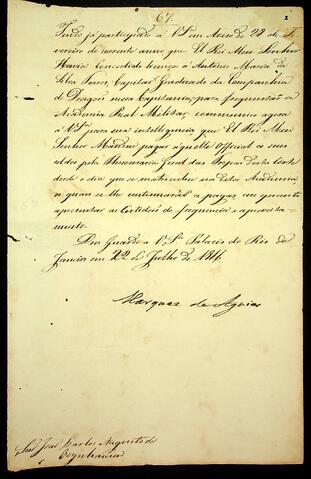 67.
1
Tendo já participado a V S.ª em Aviso de 28 de Fe-
vereiro do corrente anno que El Rei Meu Senhor
Havia Concedido licença a Antonio Maria da
Silva Torres, Capitão Graduado da Companhia
de Dragões dessa Capitania, para frequentar a
Academia Real Militar, communico agora
a V S.ª para sua intelligencia que El Rei Meu
Senhor Manda pagar áquelle Official os seus
soldos pela Thesouraria Geral das Tropas desta Corte
desde o dia que se matriculou na dita Academia,
os quaes se lhe continuarão a pagar em quanto
apresentar as Certidões de frequencia e aproveita-
mento.
Deos Guarde a V. S.ª Palacio do Rio de
Janeiro em 22 de Julho de 1816.
Marquez de Aguiar
Snr. João Carlos Augusto de
Oeynhausen